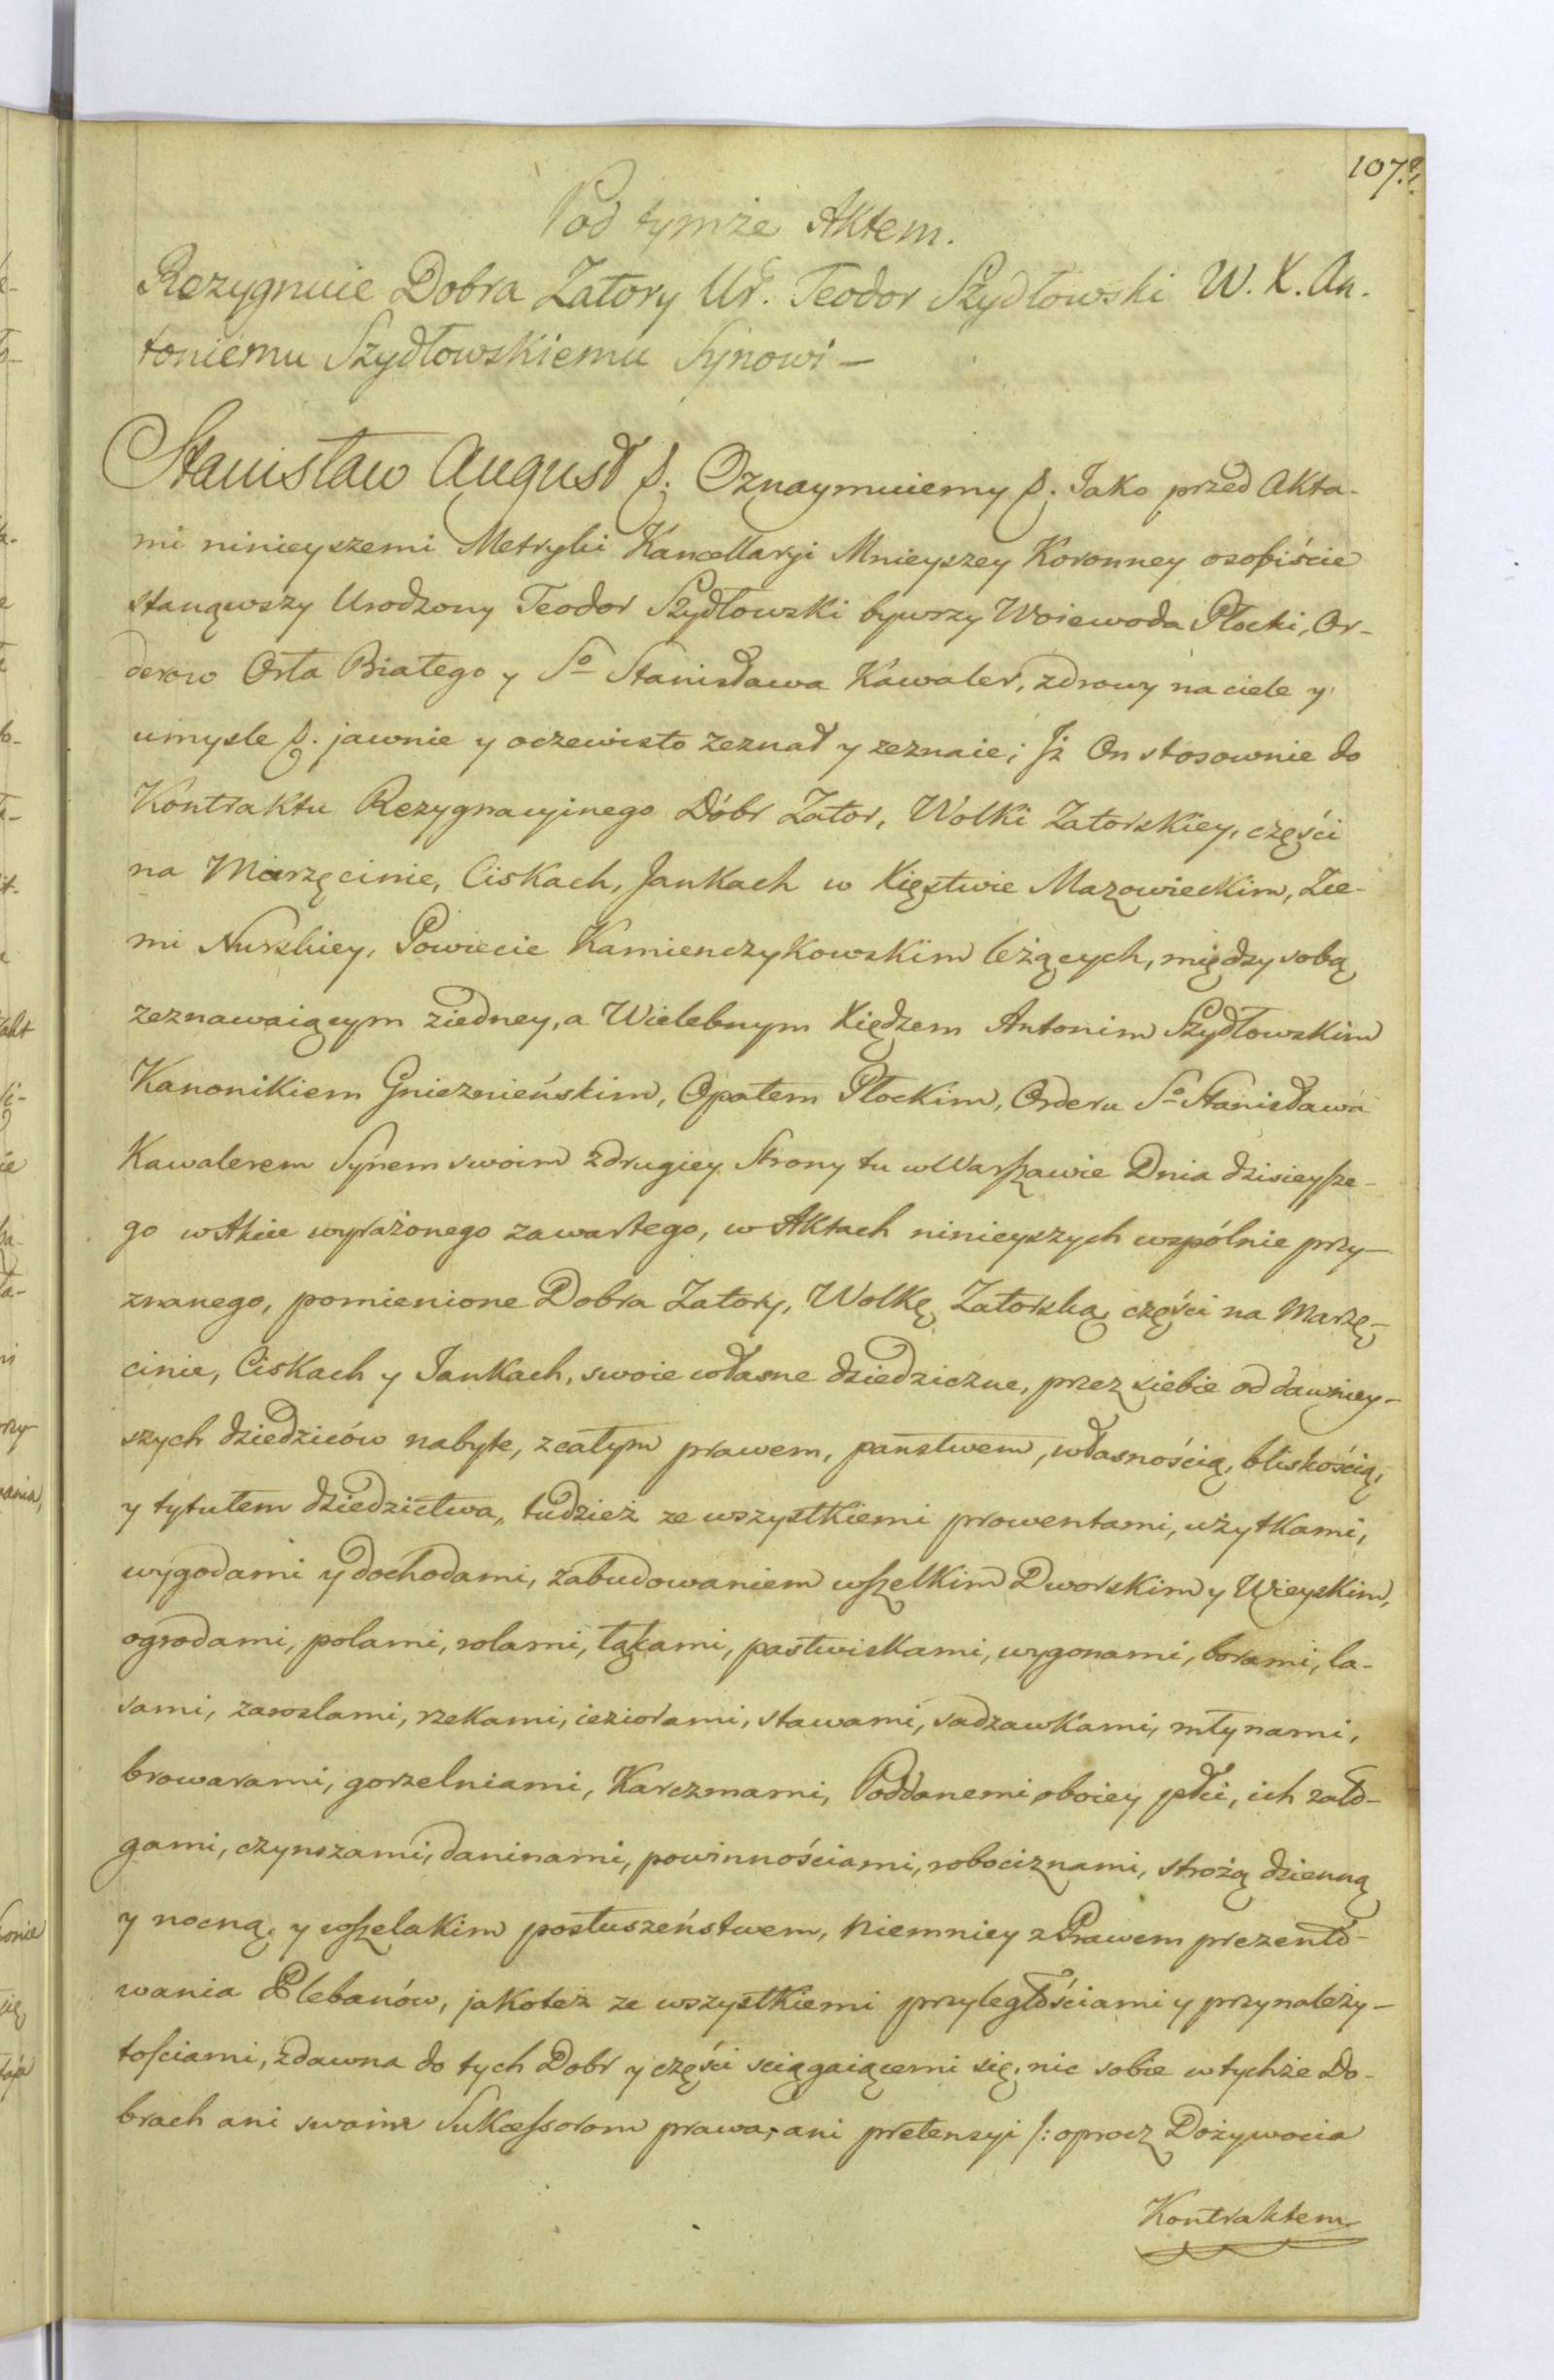 107.
Pod tymże Aktem.
Rezygnuie Dobra Zatory Ur. Teodor Szydłowski W. X. An-
toniemu Szydłowskiemu Synowi —
Stanisław August &. Oznaymuiemy &. Jako przed Akta-
mi ninieyszemi Metryki Kancellaryi Mnieyszey Koronney osobiście
stanąwszy Urodzony Teodor Szydłowski bywszy Woiewoda Płocki, Or-
derow Orła Białego y So Stanisława Kawaler, zdrowy na ciele y
umysle &. jawnie y oczewisto zeznał y zeznaie; Iż On stosownie do
Kontraktu Rezygnacyinego Dóbr Zator, Wólki Zatorskiey, części
na Marzęcinie, Ciskach, Jankach w Xięstwie Mazowieckim, Zie-
mi Nurskiey, Powiecie Kamienczykowskim leżących, między sobą
zeznawaiącym ziedney, a Wielebnym Xiędzem Antonim Szydłowskim
Kanonikiem Gnieznieńskim, Opatem Płockim, Orderu So Stanisława
Kawalerem Synem swoim zdrugiey Strony tu w Warszawie Dnia dzisieysze-
go w Akcie wyrażonego zawartego, w Aktach ninieyszych wspólnie przy-
znanego, pomienione Dobra Zatory, Wolkę Zatorską, części na Marzę-
cinie, Ciskach y Jankach, swoie własne dziedziczne, przez siebie od dawniey-
szych dziedziców nabyte, zcałym prawem, państwem, własnością, bliskością,
y tytułem dziedzictwa, tudzież ze wszystkiemi prowentami, użytkami,
wygodami y dochodami, zabudowaniem wszelkim Dworskim y Wieyskim,
ogrodami, polami, rolami, łąkami, pastwiskami, wygonami, borami, la-
sami, zaroslami, rzekami, ieziorami, stawami, sadzawkami, młynami,
browarami, gorzelniami, Karczmami, Poddanemi oboiey płci, ich zało-
gami, czynszami, daninami, powinnościami, robociznami, strożą dzienną
y nocną, y wszelakim posłuszeństwem, niemniey z Prawem prezento-
wania Plebanów, jakoteż ze wszystkiemi przyległościami y przynależy-
tościami, zdawna do tych Dobr y części sciągaiącemi się, nic sobie w tychże Do-
brach ani swoim Sukcessorom prawa, ani pretensyi /: oprocz Dożywocia
Kontraktem